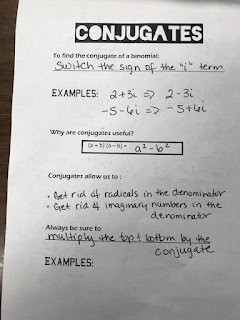 CONJUGATES
To find the conjugate of a binomial:
Switch the sign of the "i" term
EXAMPLES: 2+3i => 2-3i
-5-6i => -5+6i
Why are conjugates useful?
(a + b) (a – b) = a² - b²
Conjugates allow us to :
• Get rid of radicals in the denominator
• Get rid of imaginary numbers in the
denominator
Always be sure to
multiply the top & bottom by the
conjugate
EXAMPLES: